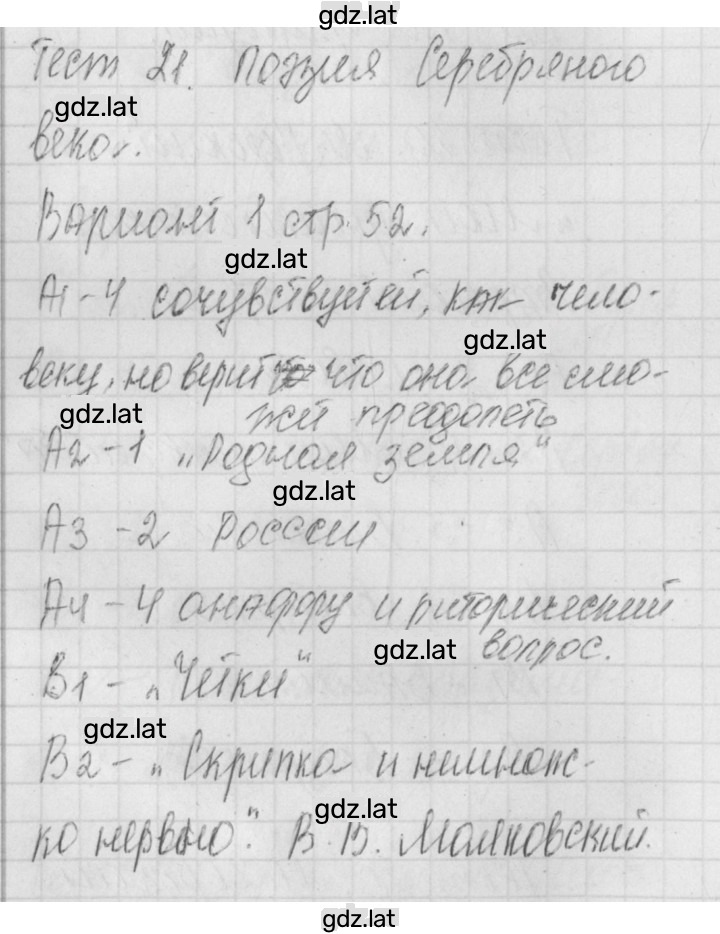 gdz.lat
Тест 21. Поэзия Серебряного
gdz.lat
века.
Вариант 1 стр. 52.
gdz.lat
А1-4 сочувствует ей, как чело-
gdz.lat
веку, но верит что она все смо-
gdz.lat
жет преодолеть
А2-1 „Родная земля“
gdz.lat
А3-2 России
А4-4 анафору и риторический
gdz.lat вопрос.
В1- „Чётки“
gdz.lat
В2- „Скрипка и немнож-
gdz.lat
ко нервно“. В. В. Маяковский.
gdz.lat